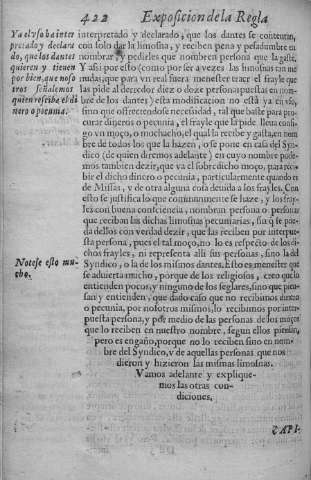 422 Exposicion de la Regla
Ya el vso ha inter
pretado y declara
do, que los dantes
quieren y tienen
por bien, que noso
tros señalemos
quien reciba el di
nero o pecunia.
interpretado y declarado, que los dantes se contentan,
con solo dar la limosna, y reciben pena y pesadumbre en
nombrar, y pedirles que nombren persona que la gaste.
Y assi por esto como por ser a vezes las limosnas tan me
nudas, que para vn real fuera menester traer el frayle que
las pide al derredor diez o doze personas puestas en nom
bre de los dantes) esta modificacion no está ya en vso,
sino que offreciendose necesidad, tal que baste para pro-
curar dineros o pecunia, el frayle que la pide lleua consi-
go vn moço, o mochacho, el qual la recibe y gasta, en nom
bre de todos los que la hazen, o se pone en casa del Syn-
dico (de quien diremos adelante) en cuyo nombre pode-
mos tambien dezir, que va el sobredicho moço, para reci-
bir el dicho dinero o pecunia, particularmente quando es
de Missas, y de otra alguna cosa deuida a los frayles. Con
esto se justifica lo que communmente se haze, y los fray-
les con buena consciencia, nombran persona o personas
que reciban las dichas limosnas pecuniarias, sin que se pue-
da dellos con verdad dezir, que las reciben por interpue-
sta persona, pues el tal moço, no lo es respecto de los di-
chos frayles, ni representa alli sus personas, sino la del
Syndico, o la de los mismos dantes. Esto es menester que
Notese esto mu-
cho.
se aduierta mucho, porque de los religiosos, creo que lo
entienden pocos, y ninguno de los seglares, sino que pien
san y entienden, que dado caso que no recibimos dinero
o pecunia, por nosotros mismos, lo recibimos por inter-
puesta persona, y por medio de las personas de los moços
que lo reciben en nuestro nombre, segun ellos piensan,
pero es engaño, porque no lo reciben sino en nom-
bre del Syndico, v de aquellas personas que nos
dieron y hizieron las mismas limosnas.
Vamos adelante y explique-
mos las otras con-
diciones,
CAPI-